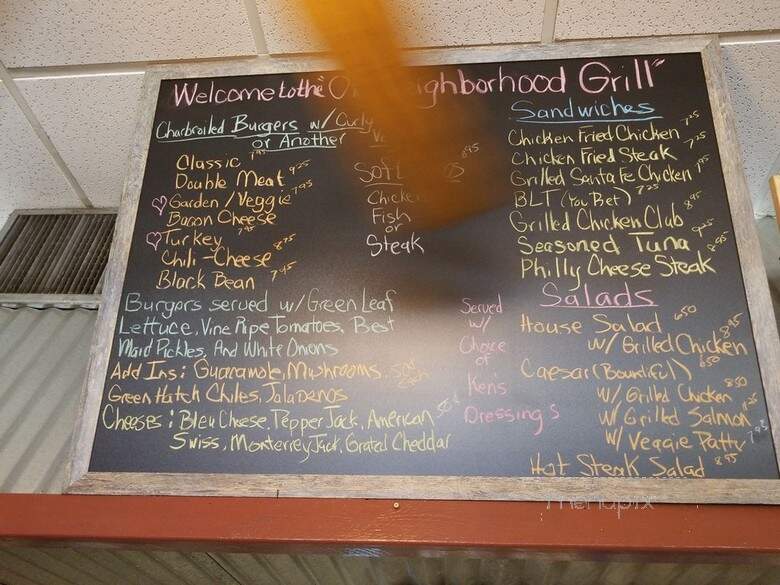 Welcome to the "O ighborhood Grill"
Charbroiled Burgers w/ Curly
or Another
Classic 7.95
Double Meat 9.25
Garden/Veggie 7.95
Bacon Cheese
Turkey 7.95
Chili-Cheese 8.75
Black Bean 7.45
Burgers served w/ Green Leaf
Lettuce, Vine Ripe Tomatoes, Best
Maid Pickles, And White Onions
Add Ins: Guacamole, Mushrooms, .50¢ Each
Green Hatch Chiles, Jalapenos
Cheeses: Bleu Cheese, Pepper Jack, American
Swiss, Monterrey Jack, Grated Cheddar
Soft
Chicken
Fish
or
Steak
Served
w/
Choice
of
Ken's
Dressings
Sandwiches
Chicken Fried Chicken 7.25
Chicken Fried Steak 7.25
Grilled Santa Fe Chicken
BLT (You Bet) 7.25
Grilled Chicken Club 8.95
Seasoned Tuna
Philly Cheese Steak
Salads
House Salad 6.50
w/ Grilled Chicken 8.95
Caesar (Bountiful) 6.50
w/ Grilled Chicken 8.50
w/ Grilled Salmon
w/ Veggie Patty 7.95
Hot Steak Salad 8.95
menupix